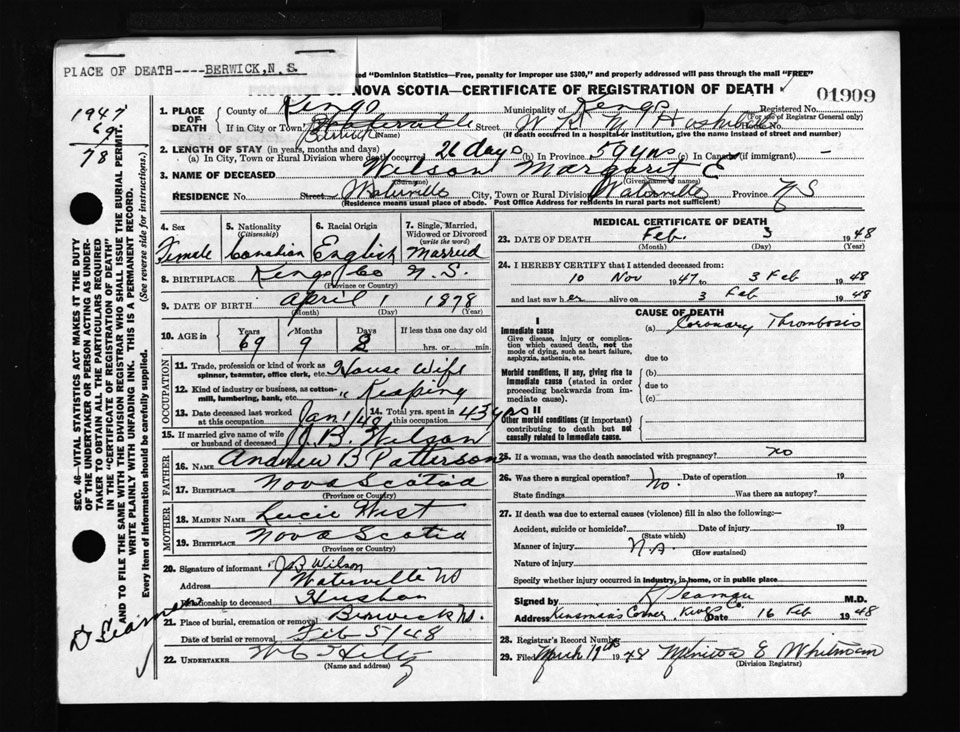 PLACE OF DEATH----BERWICK,N.S.
"Dominion Statistics—Free, penalty for improper use $300," and properly addressed will pass through the mail "FREE"
PROVINCE OF NOVA SCOTIA—CERTIFICATE OF REGISTRATION OF DEATH
01909
1947
69
78
1. PLACE OF DEATH County of Kings Municipality of Kings Registered No.
(For use of Registrar General only)
If in City or Town Berwick (Name) Street House No.
(If death occurred in a hospital or institution, give the name instead of street and number)
2. LENGTH OF STAY (in years, months and days)
(a) In City, Town or Rural Division where death occurred 26 days (b) In Province 59 yrs (c) In Canada (if immigrant) —
3. NAME OF DECEASED Wilson Margaret E
(Surname) (Given Name or Names)
RESIDENCE No. Street Waterville City, Town or Rural Division Waterville Province N S
(Residence means usual place of abode. Post Office Address for residents in rural parts not sufficient)
4. Sex Female
5. Nationality (Citizenship) Canadian
6. Racial Origin English
7. Single, Married, Widowed or Divorced (write the word) Married
8. BIRTHPLACE Kings Co N.S.
(Province or Country)
9. DATE OF BIRTH April 1 1878
(Month) (Day) (Year)
10. AGE in Years 69 Months 9 Days If less than one day old hrs. or min.
OCCUPATION
11. Trade, profession or kind of work as spinner, teamster, office clerk, etc. House Wife
12. Kind of industry or business, as cotton-mill, lumbering, bank, etc. " Keaping
13. Date deceased last worked at this occupation Jan 1/48 14. Total yrs. spent in this occupation 43 yrs
15. If married give name of wife or husband of deceased J.B. Wilson
FATHER
16. NAME Andrew B Patterson
17. BIRTHPLACE Nova Scotia
(Province or Country)
MOTHER
18. MAIDEN NAME Lucie West
19. BIRTHPLACE Nova Scotia
(Province or Country)
20. Signature of informant J B Wilson
Address Waterville NS
Relationship to deceased Husban
21. Place of burial, cremation or removal Berwick NS.
Date of burial or removal Feb 5/48
22. UNDERTAKER
(Name and address)
MEDICAL CERTIFICATE OF DEATH
23. DATE OF DEATH Feb. 3 1948
(Month) (Day) (Year)
24. I HEREBY CERTIFY that I attended deceased from:
10 Nov 1947 to 3 Feb 1948
and last saw her alive on 3 Feb 1948
CAUSE OF DEATH
I
Immediate cause (a) Coronary Thrombosis
Give disease, injury or complication which caused death, not the mode of dying, such as heart failure, asphyxia, asthenia, etc.
due to
Morbid conditions, if any, giving rise to immediate cause (stated in order proceeding backwards from immediate cause).
(b)
due to
(c)
II
Other morbid conditions (if important) contributing to death but not causally related to immediate cause.
25. If a woman, was the death associated with pregnancy? no
26. Was there a surgical operation? no. Date of operation 19
State findings Was there an autopsy?
27. If death was due to external causes (violence) fill in also the following:—
Accident, suicide or homicide? Date of injury 19
(State which)
Manner of injury
(How sustained)
Nature of injury
Specify whether injury occurred in industry, in home, or in public place
Signed by M.D.
Address Corner, Date 16 Feb 1948
28. Registrar's Record Number
29. Filed March 19th 1948 E Whitman
(Division Registrar)
SEC. 46—VITAL STATISTICS ACT MAKES IT THE DUTY
OF THE UNDERTAKER OR PERSON ACTING AS UNDERTAKER TO OBTAIN ALL THE PARTICULARS REQUIRED
IN THE "CERTIFICATE OF REGISTRATION OF DEATH"
AND TO FILE THE SAME WITH THE DIVISION REGISTRAR WHO SHALL ISSUE THE BURIAL PERMIT.
WRITE PLAINLY WITH UNFADING INK. THIS IS A PERMANENT RECORD.
Every item of information should be carefully supplied. (See reverse side for instructions.)